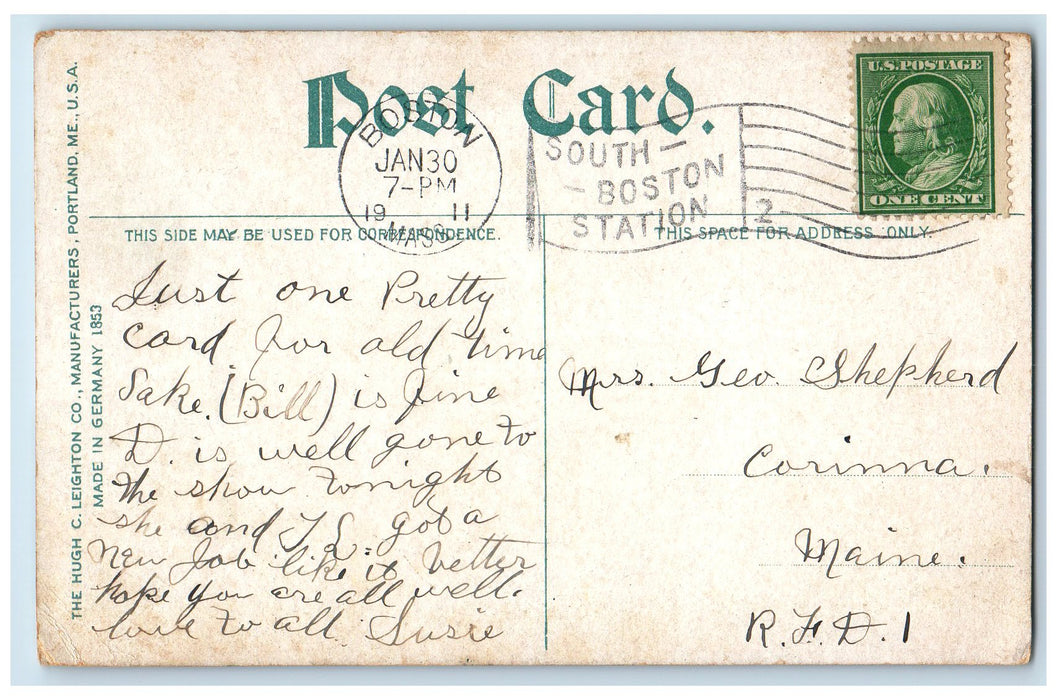 Post Card.
BOSTON
JAN 30
7-PM
19 11
MASS.
SOUTH-
- BOSTON
STATION
2
U.S. POSTAGE
ONE CENT
THIS SIDE MAY BE USED FOR CORRESPONDENCE.
THIS SPACE FOR ADDRESS ONLY.
THE HUGH C. LEIGHTON CO., MANUFACTURERS, PORTLAND, ME., U.S.A.
MADE IN GERMANY 1853
Just one Pretty
card for old time
Sake. (Bill) is fine
D. is well gone to
the show tonight
she and I got a
new Job like it better
hope you are all well.
love to all Susie
Mrs. Geo. Shepherd
Corinna.
Maine.
R.F.D. 1